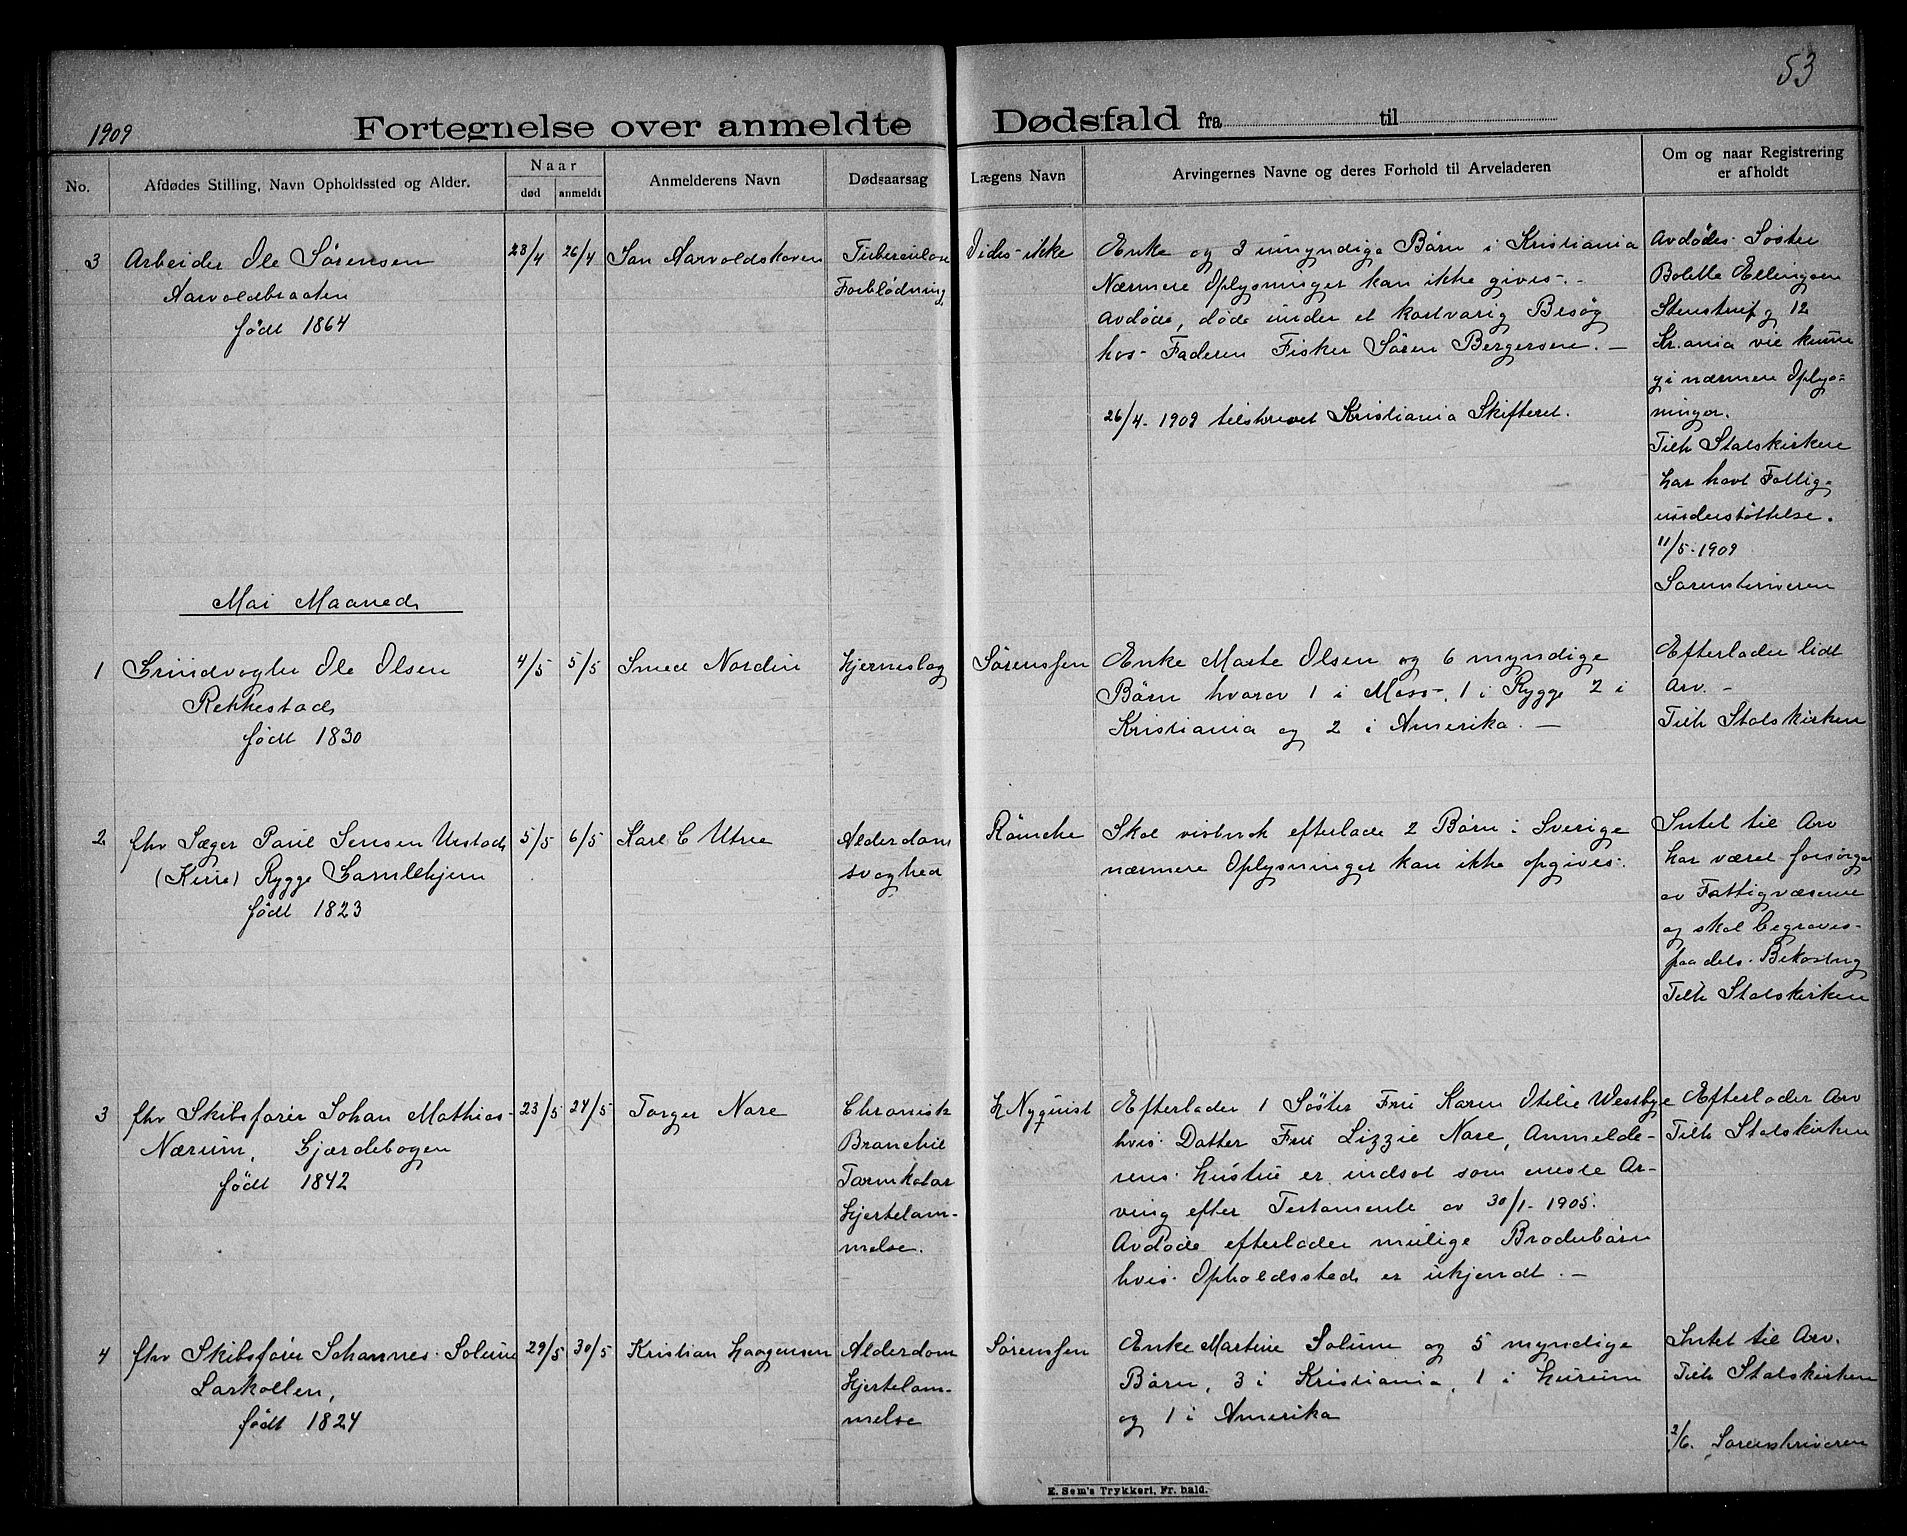 53
1909 Fortegnelse over anmeldte Dødsfald fra til
No. Afdødes Stilling, Navn Opholdssted og Alder. Naar død anmeldt Anmelderens Navn Dødsaarsag Lægens Navn Arvingernes Navne og deres Forhold til Arveladeren Om og naar Registrering er afholdt
3 Arbeider Ole Sørensen
Aarvoldbraaten
født 1864
23/4 26/4 Jan Aarvoldskoven
Tuberculose
Forblødning
Vides ikke
Enke og 3 umyndige Børn i Kristiania
Nærmere Oplysninger kan ikke gives. -
Avdøde, døde under et kortvarig Besøg
hos Faderen Fisker Søren Bergersen. -
26/4 - 1909 tilskrevet Kristiania Skifteret.
Avdødes Søster
Bolette Ellingsen
Stenstrupg 12
Kr.ania vil kunne
gi nærmere Oplys-
ninger.
Tilh Statskirken
har havt Fattig-
understøttelse.
11/5 - 1909
Sorenskriveren
Mai Maaned
1 Grindvogter Ole Olsen
Rekkestad
født 1830
4/5 5/5 Smed Nordin
Hjerneslag
Sørenssen
Enke Marte Olsen og 6 myndige
Børn hvorav 1 i Moss, 1 i Rygge 2 i
Kristiania og 2 i Amerika. -
Efterlader lidt
Arv. -
Tilh Statskirken
2 fhv Jæger Paul Jensen Urstad
Rygge Gamlehjem
født 1823
5/5 6/5 Karl C Utne
Alderdoms
svaghed
Römcke
Skal vistnok efterlade 2 Børn i Sverige
nærmere Oplysninger kan ikke opgives.
Intet til Arv
har været forsørget
av Fattigvæsenet
og skal begraves
paa dets Bekostng
Tilh Statskirken
3 fhv Skibsfører Johan Mathias
Nærum, Gjærdebogen
født 1842
23/5 24/5 Torger Nare
Chronisk
Bronchit
Tarmkatar
Hjertelam-
melse.
H Nyquist
Efterlader 1 Søster Fru Karen Otilie Westbye
hvis Datter Fru Lizzie Nare, Anmelde-
rens Hustru er indsat som eneste Ar-
ving efter Testamente av 30/1 - 1905.
Avdøde efterlader mulige Broderbørn
hvis Opholdssted er ukjendt. -
Efterlader Arv
Tilh Statskirken
4 fhv Skibsfører Johannes Solum
Larkollen,
født 1824
29/5 30/5 Kristian Haagensen
Alderdom
Hjertelam-
melse
Sørenssen
Enke Martine Solum og 5 myndige
Børn, 3 i Kristiania, 1 i Hurum
og 1 i Amerika
Intet til Arv.
Tilh Statskirken
2/6. Sorenskriveren
E. Sem's Trykkeri, Fr. hald.